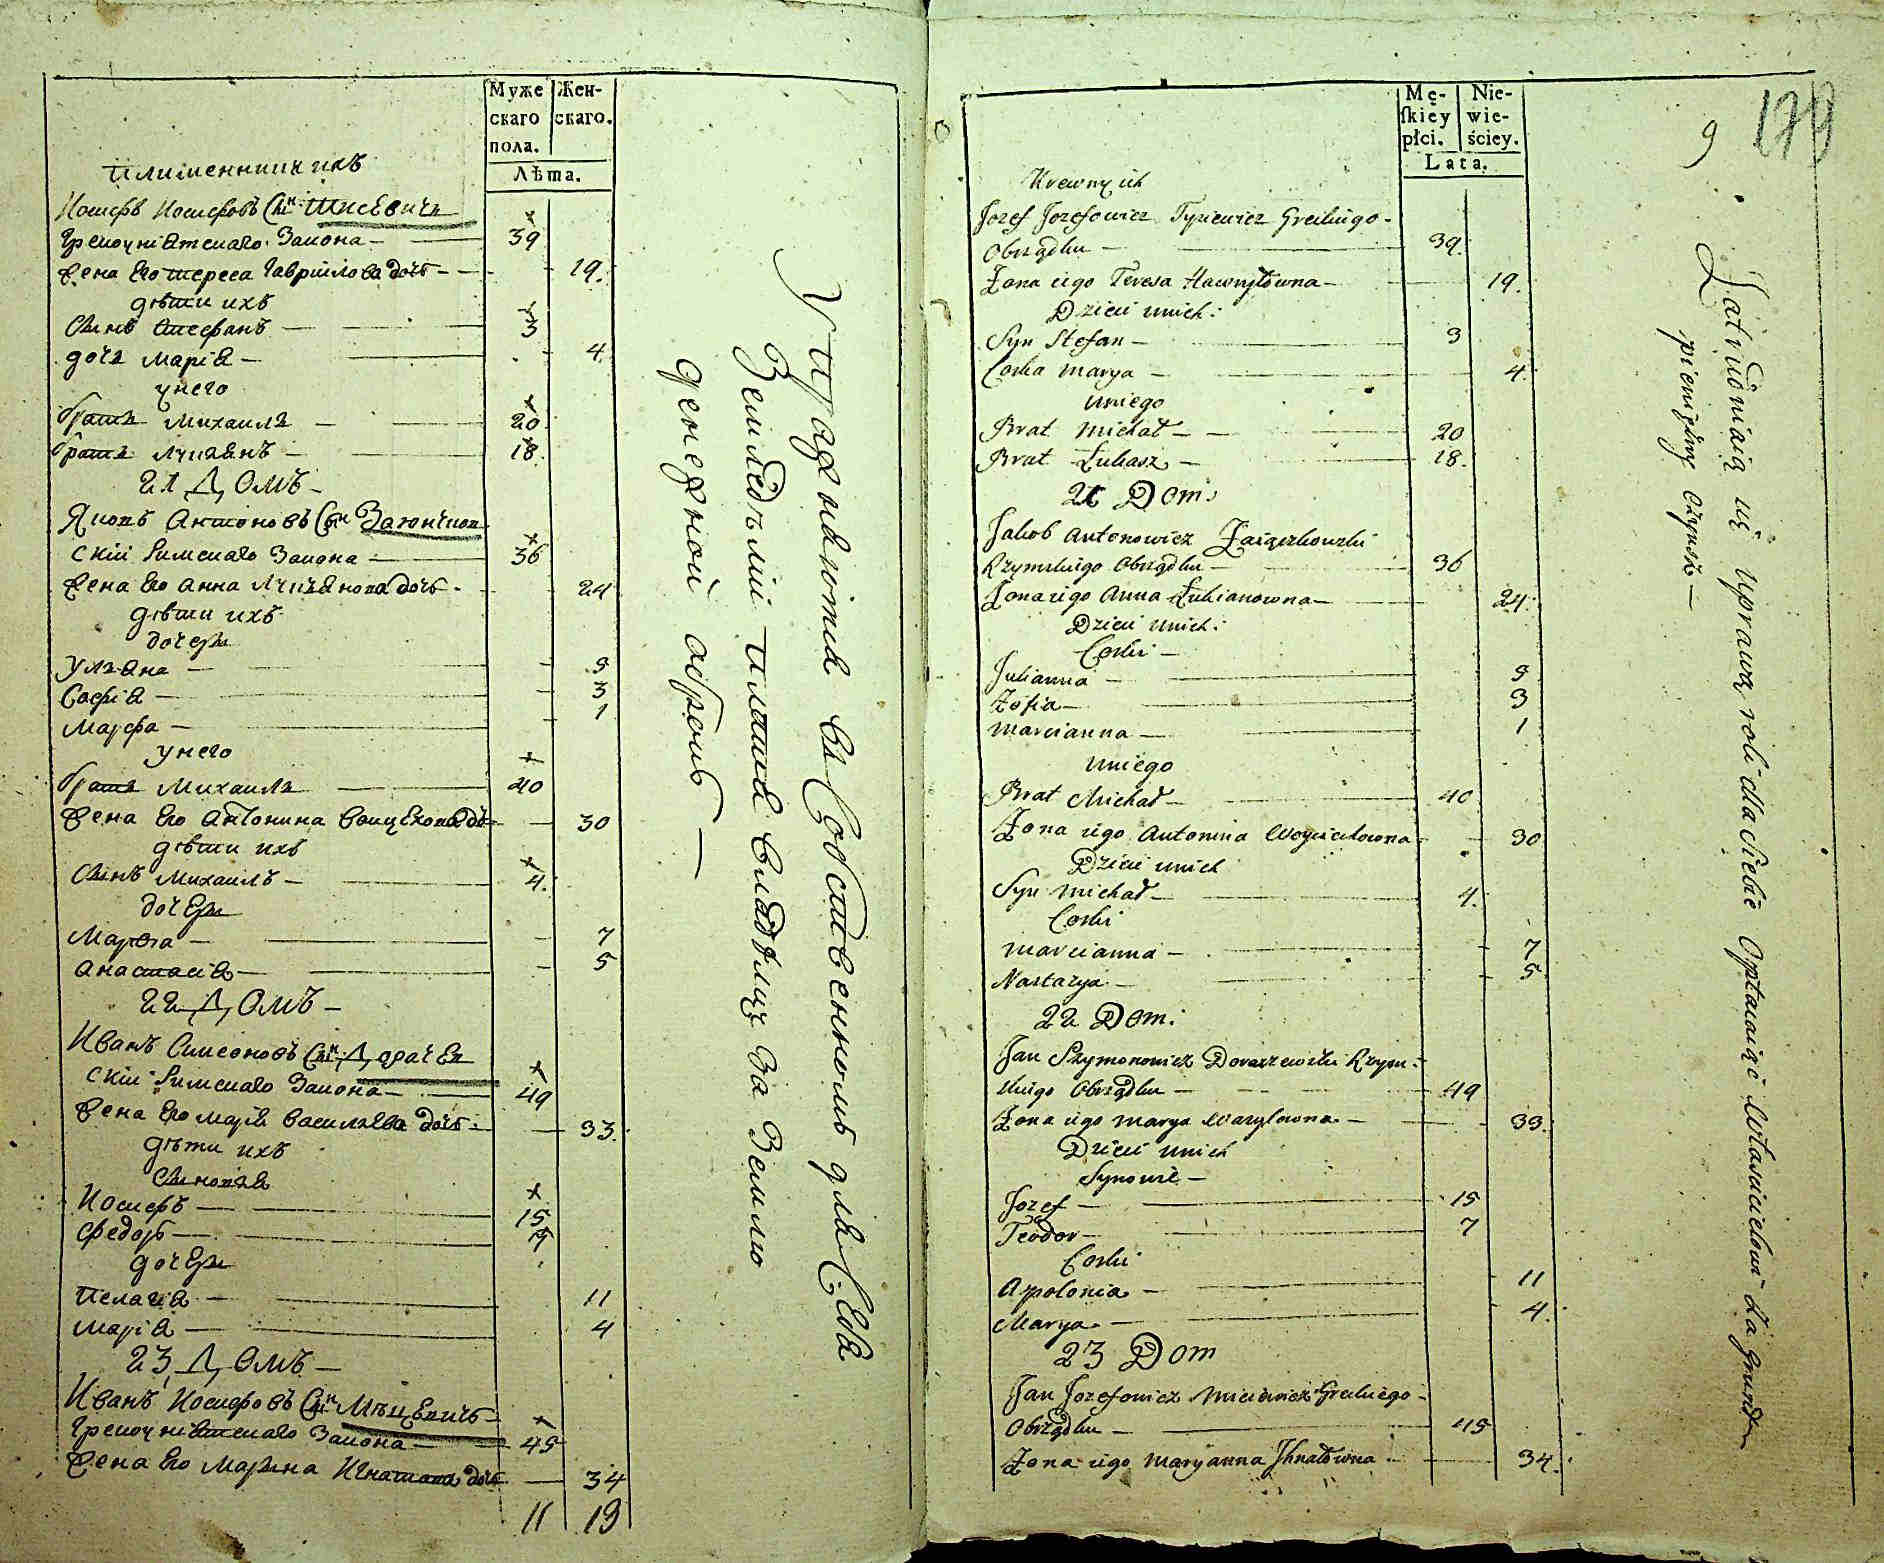 Муже
скаго
пола.
Жен-
скаго.
Лѣта.
племенники ихъ
Иосифъ Иосифовъ Сынъ Тисевичь
Грекоуніятскаго Закона — 39
Жена Его тереса Гаврилова дочь — 19.
дѣти ихъ
Сынъ Стефанъ — 3
дочь Марія — 4
у него
братъ Михаилъ — 20
братъ Лукіянъ — 18.
21 Домъ —
Якопъ Антоновъ Сынъ Заіончков
скій Римскаго Закона — 36
Жена Его Анна Лукіянова дочь — 24
дѣти ихъ
дочери
Ульяна — 9
Софія — 3
Марфа — 1
у него
братъ Михаилъ — 40
Жена Его Антонина Войцехова дочь — 30
дѣти ихъ
Сынъ Михаилъ — 4.
дочери
Марѳа — 7
Анастасія — 5
22 Домъ —
Иванъ Симоновъ Сынъ Дорачев
скій Римскаго Закона — 49
Жена Его Марія Васильева дочь — 33.
дѣти ихъ
Сыновья
Иосифъ — 15
Федоръ — 7
дочери
Пелагія — 11
Марія — 4
23 Домъ —
Иванъ Иосифовъ Сынъ Мицевичъ
Грекоуніятскаго Закона — 45
Жена Его Марьяна Игнатова дочь — 34
11 19
Упражняются въ Собственномъ для Себя
Земледѣліи платя Владѣльцу за Землю
денежной оброкъ —
179
9
Mę-
ſkiey
płci.
Nie-
wie-
ściey.
Lata.
Krewny ich
Jozef Jozefowicz Tysiewicz Greckiego
Obrządku — 39.
Żona iego Teresa Hawryłowna — 19.
Dzieci unich:
Syn Stefan — 3
Corka Marya — 4.
Uniego
Brat Michał — 20
Brat Łukasz — 18.
21 Dom:
Jakob Antonowicz Zaiączkowski
Rzymskiego Obrządku — 36
Żona iego Anna Łukianowna — 24.
Dzieci unich:
Corki —
Julianna — 9
Zofia — 3
Marcianna — 1
Uniego
Brat Michał — 40
Żona iego Antonina Woyciechowna — 30
Dzieci unich
Syn Michał — 4.
Corki
Marcianna — 7
Nastazya — 5
22 Dom:
Jan Szymonowicz Doraszewski Rzym:
skiego Obrządku — 49
Żona iego Marya Wasylowna — 33.
Dzieci unich
Synowie —
Jozef — 15
Teodor — 7
Corki
Apolonia — 11
Marya — 4.
23 Dom
Jan Jozefowicz Miciewicz Greckiego
Obrządku — 45
Żona iego Maryanna Jhnatowna — 34.
Zatrudniaią się uprawą roli dla siebie Opłacaiąc Właścicielowi za grunt
pieniężny Czynsz —